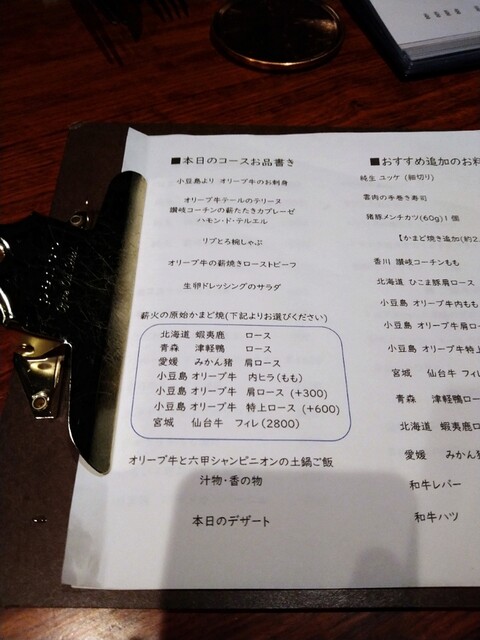 ■本日のコースお品書き
小豆島より オリーブ牛のお刺身
オリーブテールのテリーヌ
讃岐コーチンの薪たたきカプレーゼ
ハモン・ド・テルエル
リブとろ椀しゃぶ
オリーブ牛の薪焼きローストビーフ
生卵ドレッシングのサラダ
薪火の原始かまど焼(下記よりお選びください)
北海道 蝦夷鹿 ロース
青森 津軽鴨 ロース
愛媛 みかん猪 肩ロース
小豆島 オリーブ牛 内ヒラ(もも)
小豆島 オリーブ牛 肩ロース (+300)
小豆島 オリーブ牛 特上ロース (+600)
宮城 仙台牛 フィレ(2800)
オリーブ牛と六甲シャンピニオンの土鍋ご飯
汁物・香の物
本日のデザート
■おすすめ追加のお料
純生 ユッケ (細切り)
雲肉の手巻き寿司
猪豚メンチカツ(60g)1個
【かまど焼き追加(約2.
香川 讃岐コーチンもも
北海道 ひこま豚肩ロース
小豆島 オリーブ牛内も
小豆島 オリーブ牛肩ロ
小豆島 オリーブ牛特上
宮城 仙台牛 フィレ
青森 津軽鴨ロー
北海道 蝦夷鹿ロ
愛媛 みかん猪
和牛レバー
和牛ハツ